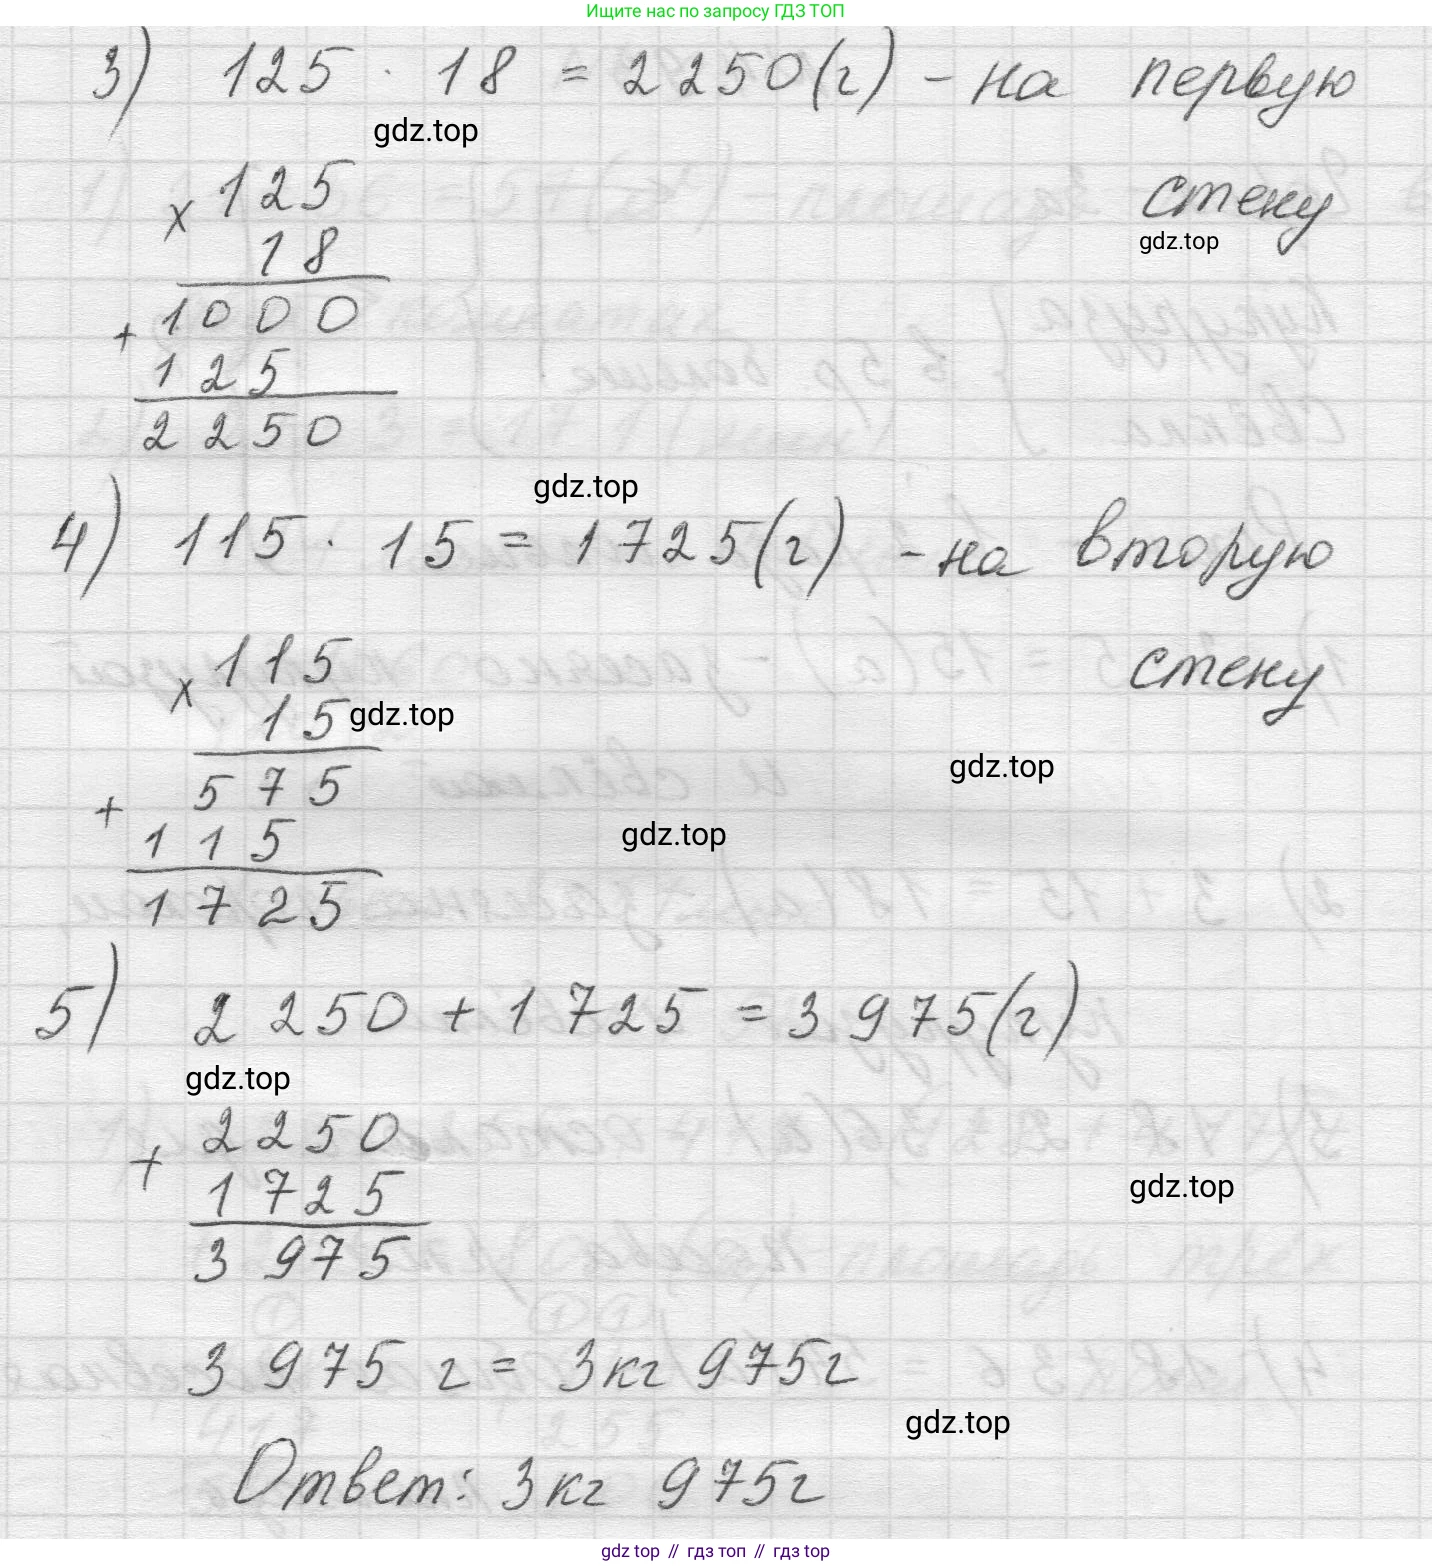 Ищите нас по запросу ГДЗ ТОП
3) 125 · 18 = 2250(г) - на первую
gdz.top
× 125
стену
18
gdz.top
1000
+
125
2250
gdz.top
4) 115 · 15 = 1725(г) - на вторую
× 115
стену
15 gdz.top
gdz.top
575
+
115
gdz.top
1725
5) 2250 + 1725 = 3975(г)
gdz.top
2250
+
1725
gdz.top
3975
3975 г = 3кг 975г
gdz.top
Ответ: 3кг 975г
gdz top // гдз топ // гдз top